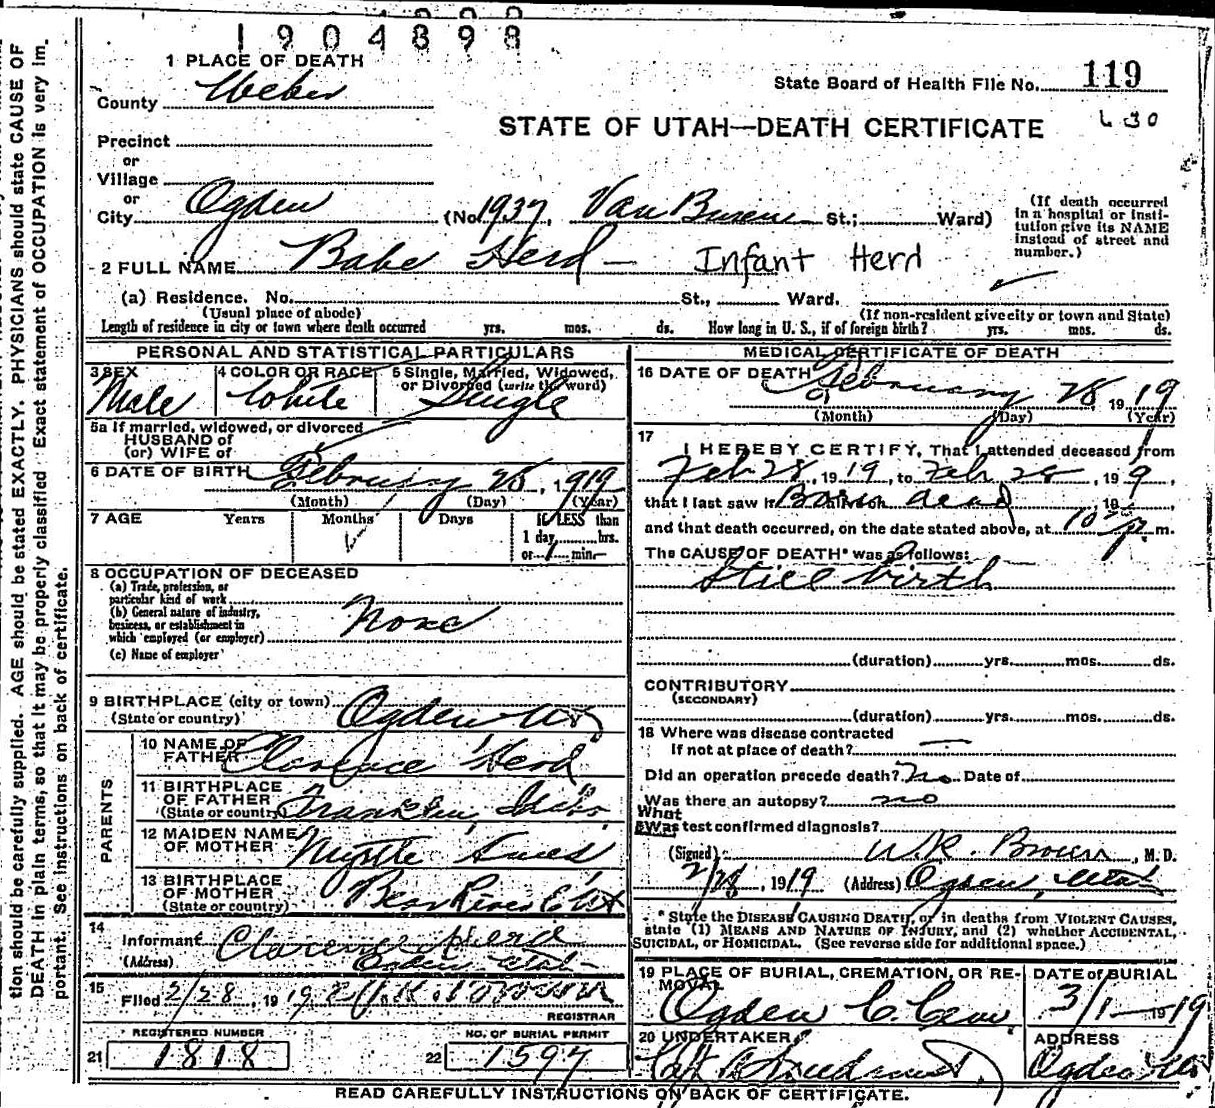 1904898
1 PLACE OF DEATH
County Weber
State Board of Health File No. 119
STATE OF UTAH—DEATH CERTIFICATE
630
Precinct
or
Village
or
City Ogden (No. 1937, Van Buren St.; Ward)
(If death occurred in a hospital or institution give its NAME instead of street and number.)
2 FULL NAME Babe Herd — Infant Herd
(a) Residence. No. St., Ward.
(Usual place of abode) (If non-resident give city or town and State)
Length of residence in city or town where death occurred yrs. mos. ds. How long in U. S., if of foreign birth? yrs. mos. ds.
PERSONAL AND STATISTICAL PARTICULARS
3 SEX 4 COLOR OR RACE 5 Single, Married, Widowed, or Divorced (write the word)
Male White Single
5a If married, widowed, or divorced
HUSBAND of
(or) WIFE of
6 DATE OF BIRTH February 28, 1919
(Month) (Day) (Year)
7 AGE Years Months Days If LESS than
1 day, hrs.
or min.
8 OCCUPATION OF DECEASED
(a) Trade, profession, or
particular kind of work
(b) General nature of industry,
business, or establishment in
which employed (or employer) None
(c) Name of employer
9 BIRTHPLACE (city or town) Ogden Ut
(State or country)
PARENTS
10 NAME OF FATHER Clarence Herd
11 BIRTHPLACE OF FATHER Franklin, Idaho
(State or country)
12 MAIDEN NAME OF MOTHER Myrtle
13 BIRTHPLACE OF MOTHER Bear River C Ut
(State or country)
14
Informant Clarence
(Address) Ogden Utah
15
Filed 2/28, 1919
REGISTRAR
REGISTERED NUMBER NO. OF BURIAL PERMIT
21 1818 22 1597
MEDICAL CERTIFICATE OF DEATH
16 DATE OF DEATH February 28, 1919
(Month) (Day) (Year)
17
I HEREBY CERTIFY, That I attended deceased from
Feb 28, 1919, to Feb 28, 1919,
that I last saw h Born dead 19
and that death occurred, on the date stated above, at 10 p. m.
The CAUSE OF DEATH* was as follows:
Still birth
(duration) yrs. mos. ds.
CONTRIBUTORY
(SECONDARY)
(duration) yrs. mos. ds.
18 Where was disease contracted
If not at place of death? —
Did an operation precede death? no Date of
Was there an autopsy? no
What
Was test confirmed diagnosis?
(Signed) W.R. Brown, M. D.
2/28, 1919 (Address) Ogden, Utah
* State the DISEASE CAUSING DEATH, or in deaths from VIOLENT CAUSES,
state (1) MEANS AND NATURE OF INJURY, and (2) whether ACCIDENTAL,
SUICIDAL, or HOMICIDAL. (See reverse side for additional space.)
19 PLACE OF BURIAL, CREMATION, OR REMOVAL DATE of BURIAL
Ogden C. Cem 3/1 — 1919
20 UNDERTAKER ADDRESS
Ogden Utah
READ CAREFULLY INSTRUCTIONS ON BACK OF CERTIFICATE.
tion should be carefully supplied. AGE should be stated EXACTLY. PHYSICIANS should state CAUSE OF
DEATH in plain terms, so that it may be properly classified. Exact statement of OCCUPATION is very im-
portant. See instructions on back of certificate.